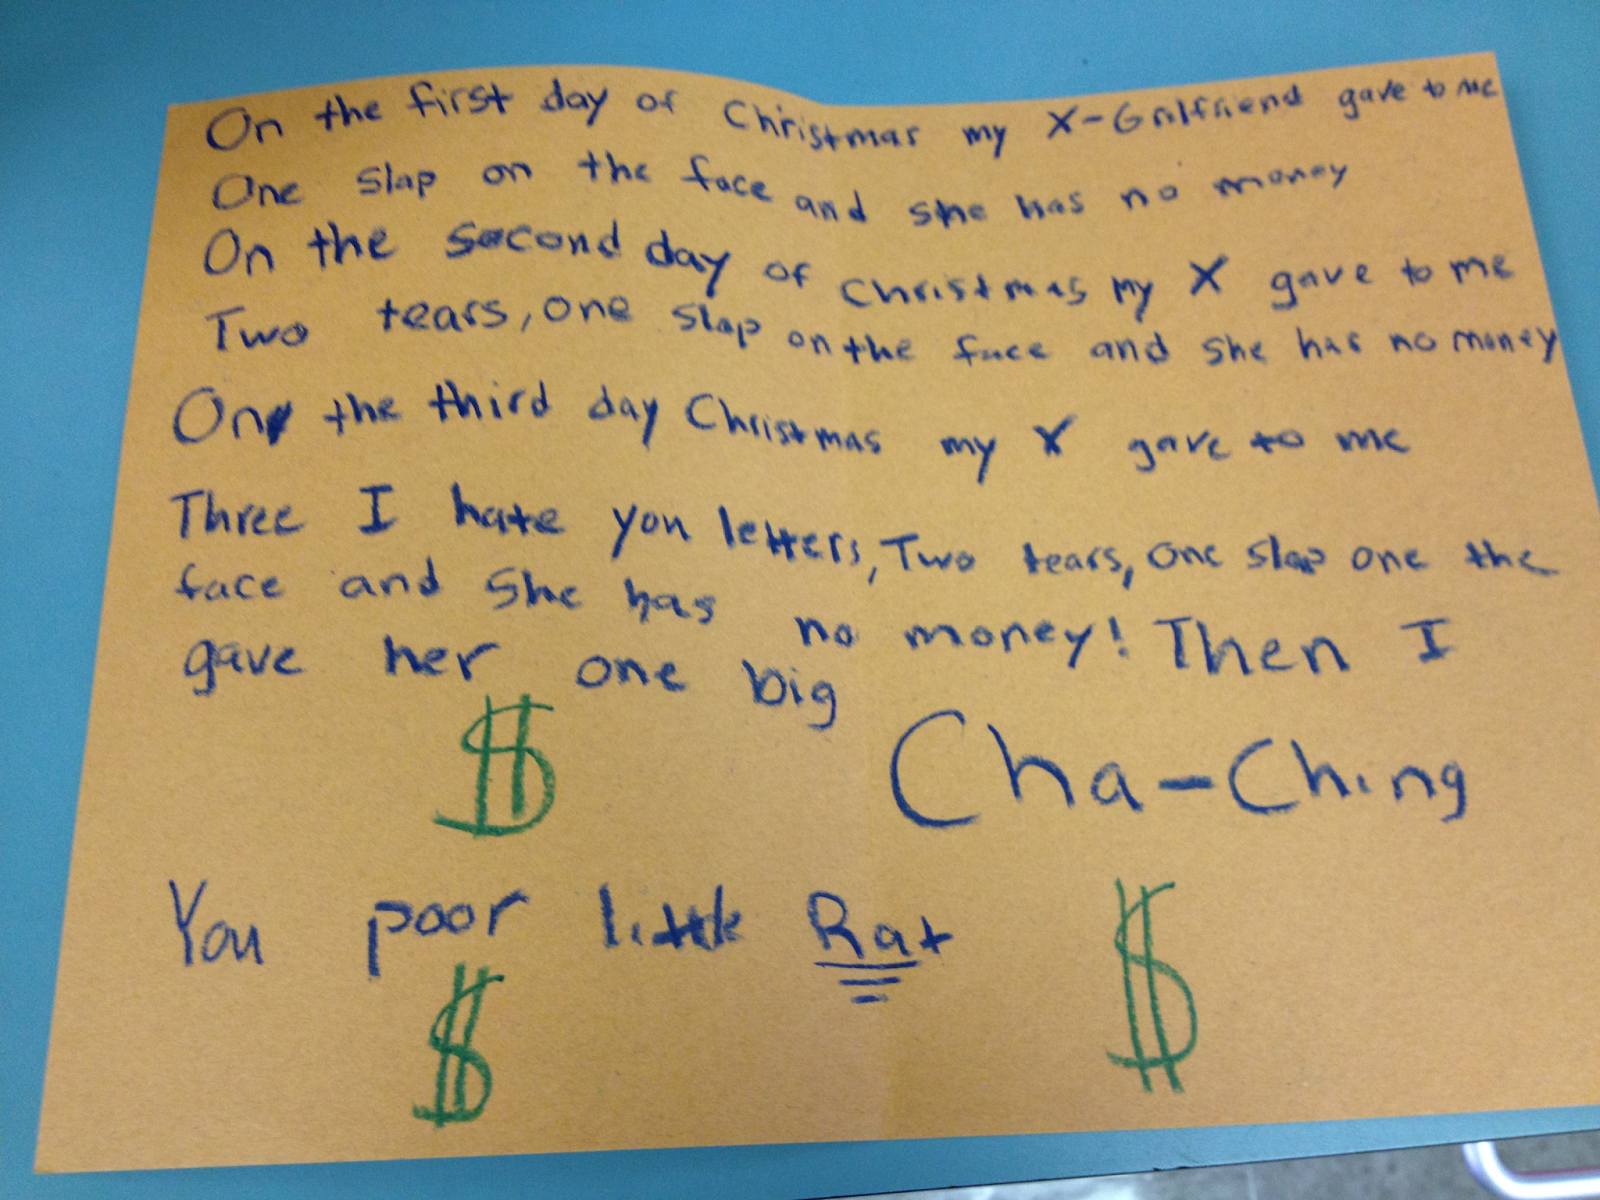 On the first day of Christmas my X-Grilfriend gave to me
One slap on the face and she has no money
On the second day of Christmas my X gave to me
Two tears, one slap on the face and she has no money
On the third day Christmas my X gave to me
Three I hate you letters, Two tears, one slap one the
face and she has no money! Then I
gave her one big
$
Cha-Ching
You poor little Rat
$ $